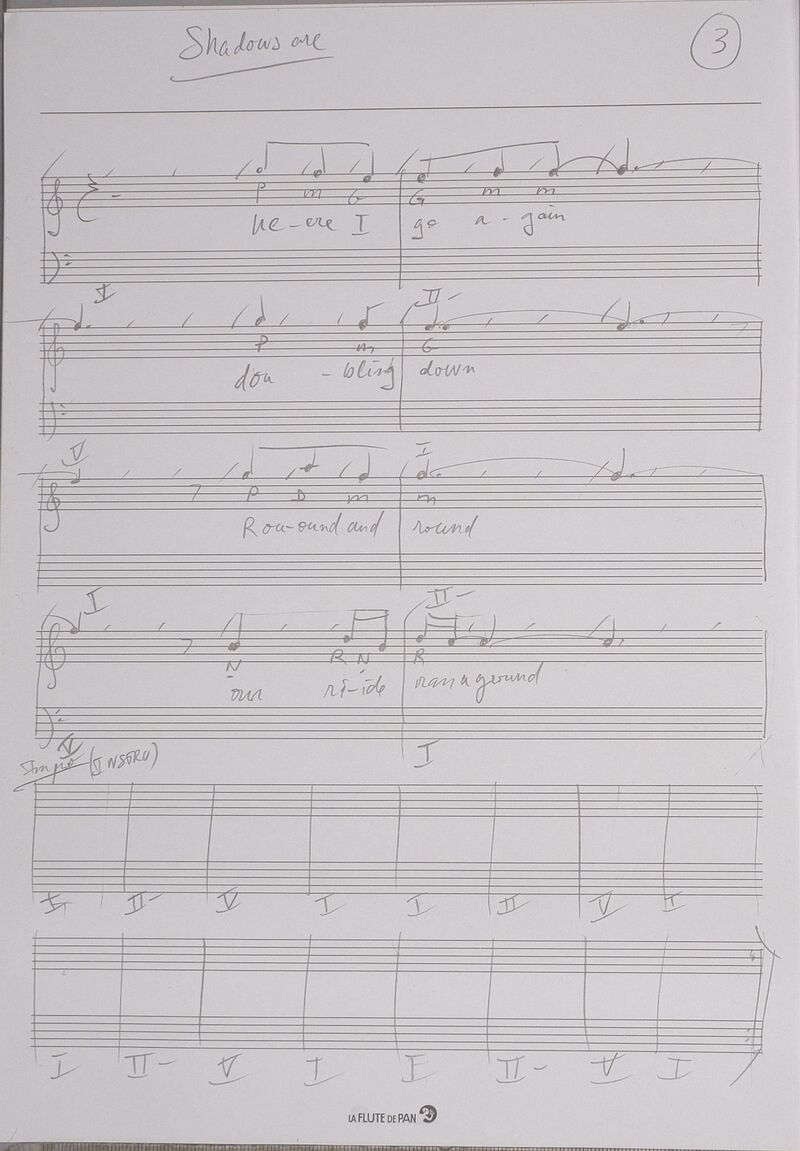 Shadows are
3
P m G G m m
he-ere I go a-gain
I II-
P m G
dou-bling down
V I
P D m m
Rou-ound and round
I II-
N R N R
our ri-ide ran a ground
V I
(INSTRU)
I II- V I I II V I
I II- V I I II- V I
LA FLUTE DE PAN